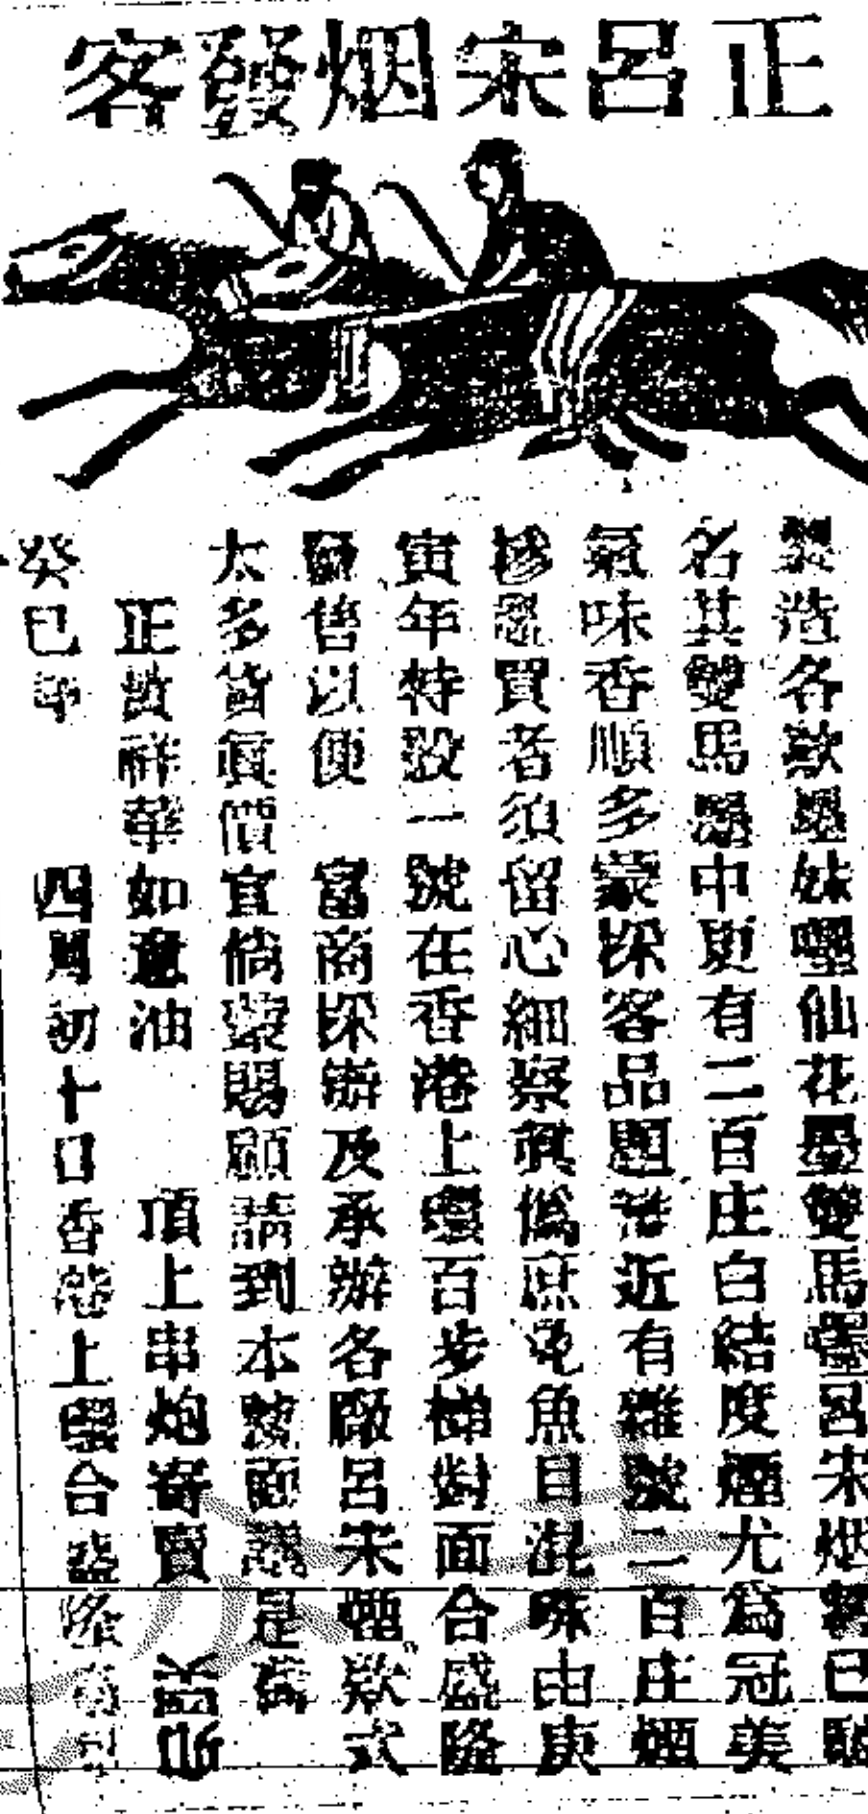 正呂宋烟發客
製造各款嘜妹嘜仙花嘜雙馬嘜呂宋烟特已馳
名其雙馬嘜中更有二百庄白結度煙尤為冠美
氣味香順多蒙採客品題 近有雜號二百庄煙
摻亂買者須留心細察真偽庶免魚目混珠由庚
寅年特設一號在香港上環百步梯對面合盛隆
發售以便 富商採辦及承辦各廠呂宋煙款式
太多貨真價宜倘蒙賜顧請到本號面議是荷
正黃祥華如意油 頂上串炮寄賣
癸巳年 四月初十日香港上環合盛隆